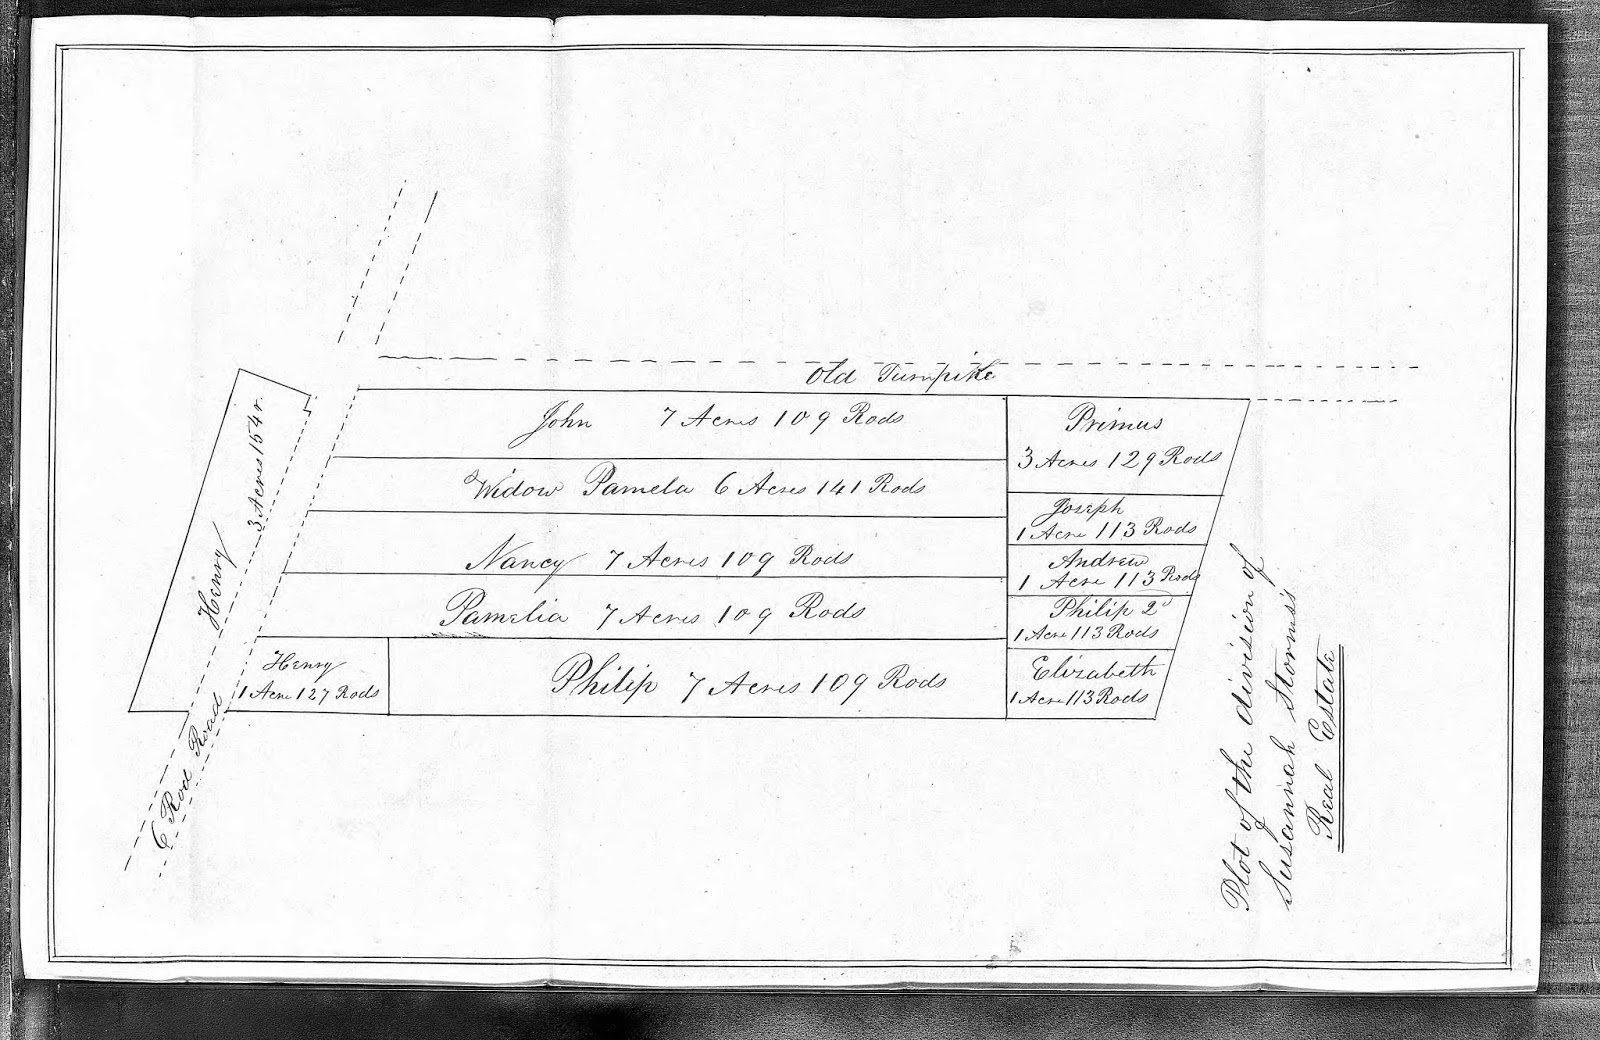 Old Turnpike
John 7 Acres 109 Rods
Widow Pamela 6 Acres 141 Rods
Nancy 7 Acres 109 Rods
Pamelia 7 Acres 109 Rods
Philip 7 Acres 109 Rods
Henry
1 Acre 127 Rods
Henry 3 Acres 154 r.
6 Rod Road
Primus
3 Acres 129 Rods
Joseph
1 Acre 113 Rods
Andrew
1 Acre 113 Rods
Philip 2d
1 Acre 113 Rods
Elizabeth
1 Acre 113 Rods
Plot of the division of
Susannah Storms's
Real Estate